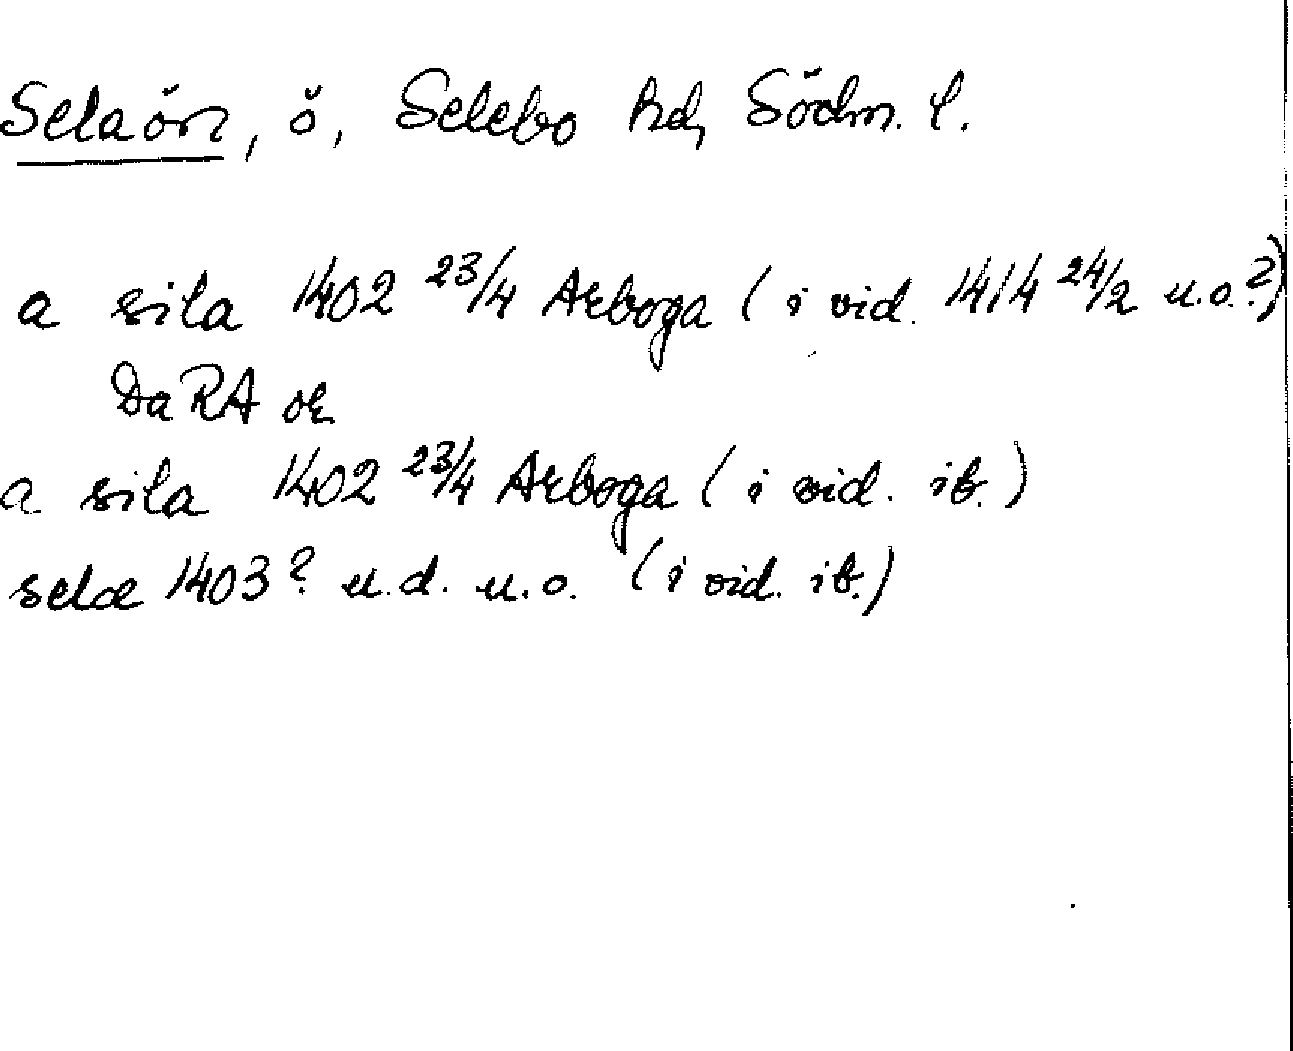 Selaön, ö, Selebo hd, Södm. l.
a sila 1402 23/4 Arboga (i vid. 1414 24/2 u.o.?)
DaRA or
a sila 1402 23/4 Arboga (i vid. ib.)
selæ 1403? u.d. u.o. (i vid. ib.)